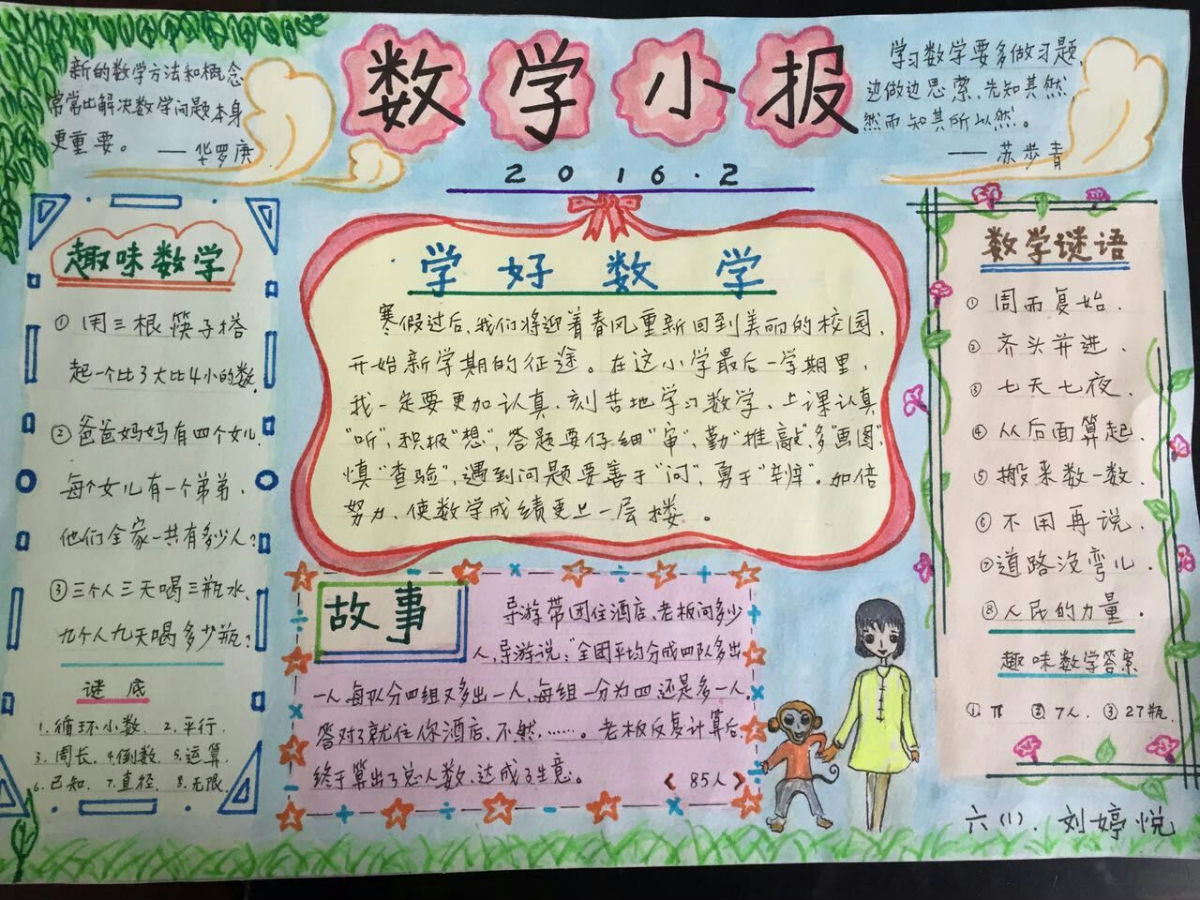 新的数学方法和概念
常常比解决数学问题本身
更重要。 ——华罗庚
数学小报
2016.2
学习数学要多做习题,
边做边思索,先知其然,
然而知其所以然。
——苏步青
趣味数学
①用三根筷子搭
起一个比3大比4小的数.
②爸爸妈妈有四个女儿.
每个女儿有一个弟弟.
他们全家一共有多少人?
③三个人三天喝三瓶水、
九个人九天喝多少瓶?
谜底
1.循环小数. 2.平行.
3.周长. 4.倒数. 5.运算.
6.已知. 7.直径. 8.无限.
学好数学
寒假过后,我们将迎着春风重新回到美丽的校园,
开始新学期的征途。在这小学最后一学期里,
我一定要更加认真、刻苦地学习数学、上课认真
"听",积极"想",答题要仔细"审",勤"推敲",多"画图"
慎"查验",遇到问题要善于"问",勇于"辩"。加倍
努力、使数学成绩更上一层楼。
故事
导游带团住酒店、老板问多少
人,导游说:"全团平均分成四队多出
一人.每队分四组又多出一人.每组一分为四还是多一人.
答对了就住你酒店、不然,……。老板反复计算后,
终于算出了总人数.达成了生意。
《85人》
数学谜语
①周而复始.
②齐头并进.
③七天七夜.
④从后面算起.
⑤搬来数一数.
⑥不用再说.
⑦道路没弯儿.
⑧人民的力量.
趣味数学答案
①π ②7人. ③27瓶.
六(1). 刘婷悦